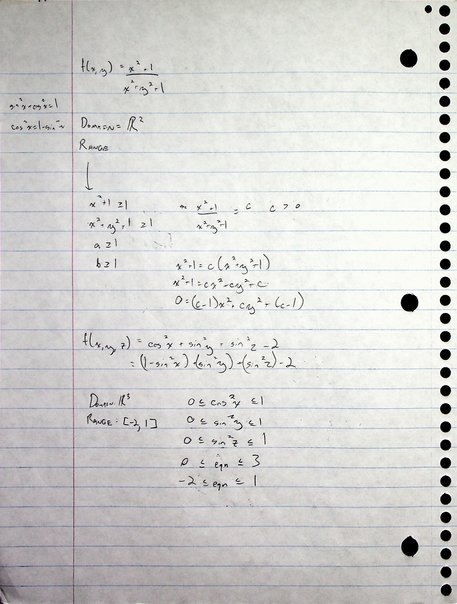 f(x,y) = x²+1 / x²+y²+1
sin²x+cos²x=1
cos²x=1-sin²x
Domain = ℝ²
Range
↓
x²+1 ≥1
x²+y²+1 ≥1
a ≥1
b ≥1
x²+1 / x²+y²+1 = c c > 0
x²+1 = c(x²+y²+1)
x²+1 = cx²+cy²+c
0=(c-1)x²+cy²+(c-1)
f(x,y,z) = cos²x + sin²y + sin²z -2
= (1-sin²x)+(sin²y)+(sin²z)-2
Domain: ℝ³
Range: [-2,1]
0 ≤ cos²x ≤1
0 ≤ sin²y ≤1
0 ≤ sin²z ≤ 1
0 ≤ eqn ≤ 3
-2 ≤ eqn ≤ 1